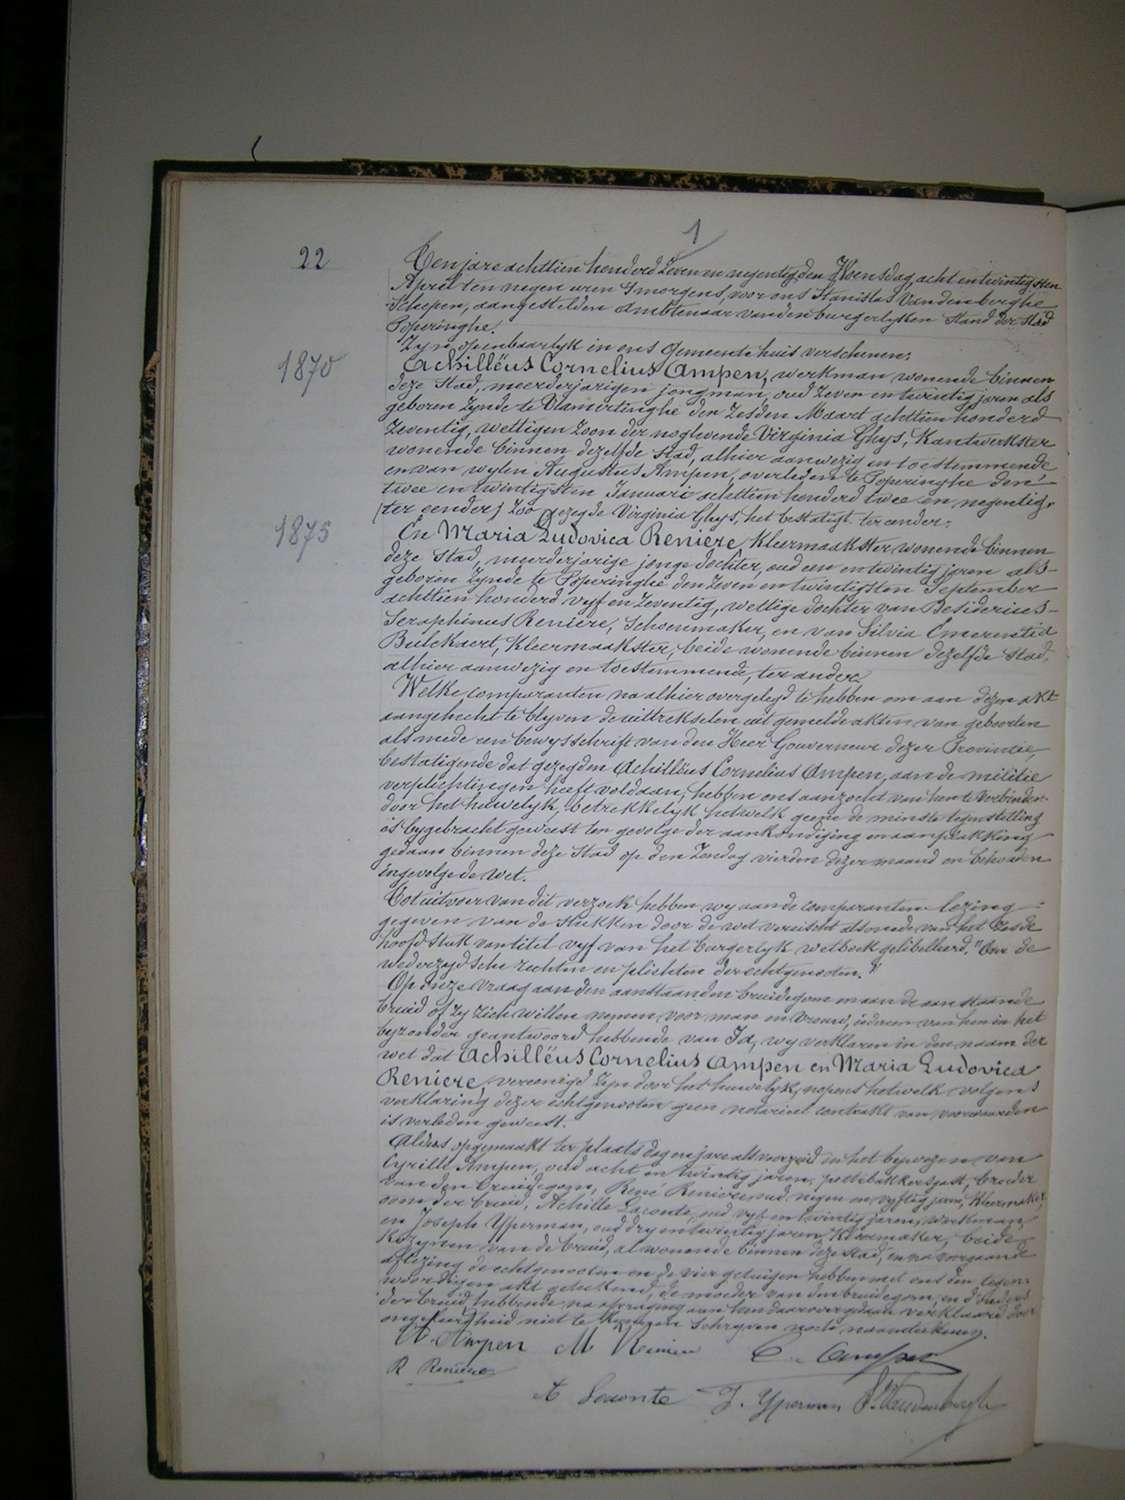 1
22
Ten jare achttien honderd zeven en negentig, den Woensdag, acht en twintigsten
April ten negen uren 's morgens, voor ons Stanislas Vandenberghe
Schepen, aangestelden Ambtenaar van den burgerlyken Stand der Stad
Poperinghe.
Zyn openbaarlyk in ons Gemeentehuis verschenen:
1870
Achilleüs Cornelius Ampen, werkman wonende binnen
deze Stad, meerderjarigen jongman, oud zeven en twintig jaren als
geboren zynde te Vlamertinghe den Zesden Maart achttien honderd
Zeventig, wettigen zoon der noglevende Virginia Ghys, Kantwerkster
wonende binnen dezelfde Stad, alhier aanwezig en toestemmende
en van wylen Augustus Ampen, overleden te Poperinghe den
twee en twintigsten Januari achttien honderd twee en negentig,
(ter eender) zoo gezegde Virginia Ghys, het bestatigt. ter eender;
1875
En Maria Ludovica Reniere, Kleermaakster, wonende binnen
deze Stad, meerderjarige jonge dochter, oud een en twintig jaren als
geboren zynde te Poperinghe den zeven en twintigsten September
achttien honderd vyf en zeventig, wettige dochter van Desiderius
Seraphinus Reniere, Schoenmaker, en van Silvia Emerentia
Beilckaert, Kleermaakster, beide wonende binnen dezelfde Stad,
alhier aanwezig en toestemmende, ter andere
Welke comparanten na alhier overgelegd te hebben om aan dezen akt
aangehecht te blyven de uittrekselen uit gemelde akten van geboorten
alsmede een bewysschrift van den Heer Gouverneur dezer Provincie,
bestatigende dat gezegden Achilleüs Cornelius Ampen, aan de militie
verplichtingen heeft voldaan, hebben ons aanzocht van hen te verbinden
door het huwelyk, betrekkelyk hetwelk geene de minste tegenstelling
is bygebracht geweest ten gevolge der aankondiging en aanplakking
gedaan binnen deze Stad op den Zondag vierden dezer maand en behouden
ingevolge de wet.
Tot uitvoer van dit verzoek hebben wy aan de comparanten lezing
gegeven van de Stukken door de wet vereischt alsmede van het zesde
hoofdstuk van titel vyf van het burgerlyk wetboek getitelleerd, "Over de
wederzydsche rechten en plichten der echtgenooten."
Op onze vraag aan den aanstaanden bruidegom en aan de aanstaande
bruid of zy zich willen nemen voor man en vrouw, iedereen van hen in het
byzonder geantwoord hebbende van Ja, wy verklaren in den naam der
wet dat Achilleüs Cornelius Ampen en Maria Ludovica
Reniere, vereenigd zyn door het huwelyk, nopens hetwelk volgens
verklaring dezer echtgenooten geen notarieel contrakt van voorwaarden
is verleden geweest.
Aldus opgemaakt ter plaats dag en jare als voorzeid in het bywezen van
Cyrille Ampen, oud acht en twintig jaren, pottebakkersgast, broeder
van den bruidegom, René Reniere, oud negen en vyftig jaren, Kleermaker,
oom der bruid, Achille Leconte, oud vyf en twintig jaren, werkman,
en Joseph Yperman, oud dry en twintig jaren, Kleermaker, beide
Kozynen van de bruid, al wonende binnen deze stad, en na voorgaande
aflezing de echtgenooten en de vier getuigen hebben met ons den tegen-
woordigen akt geteekend, de moeder van den bruidegom, en d'ouders
der bruid hebbende na afvraging aan hen daarover gedaan verklaard door
ongeleerdheid niet te kunnen schryven noch naamteekenen.
A. Ampen M Reniere C. Ampen
R Reniere
A Leconte J. Yperman St Vandenberghe